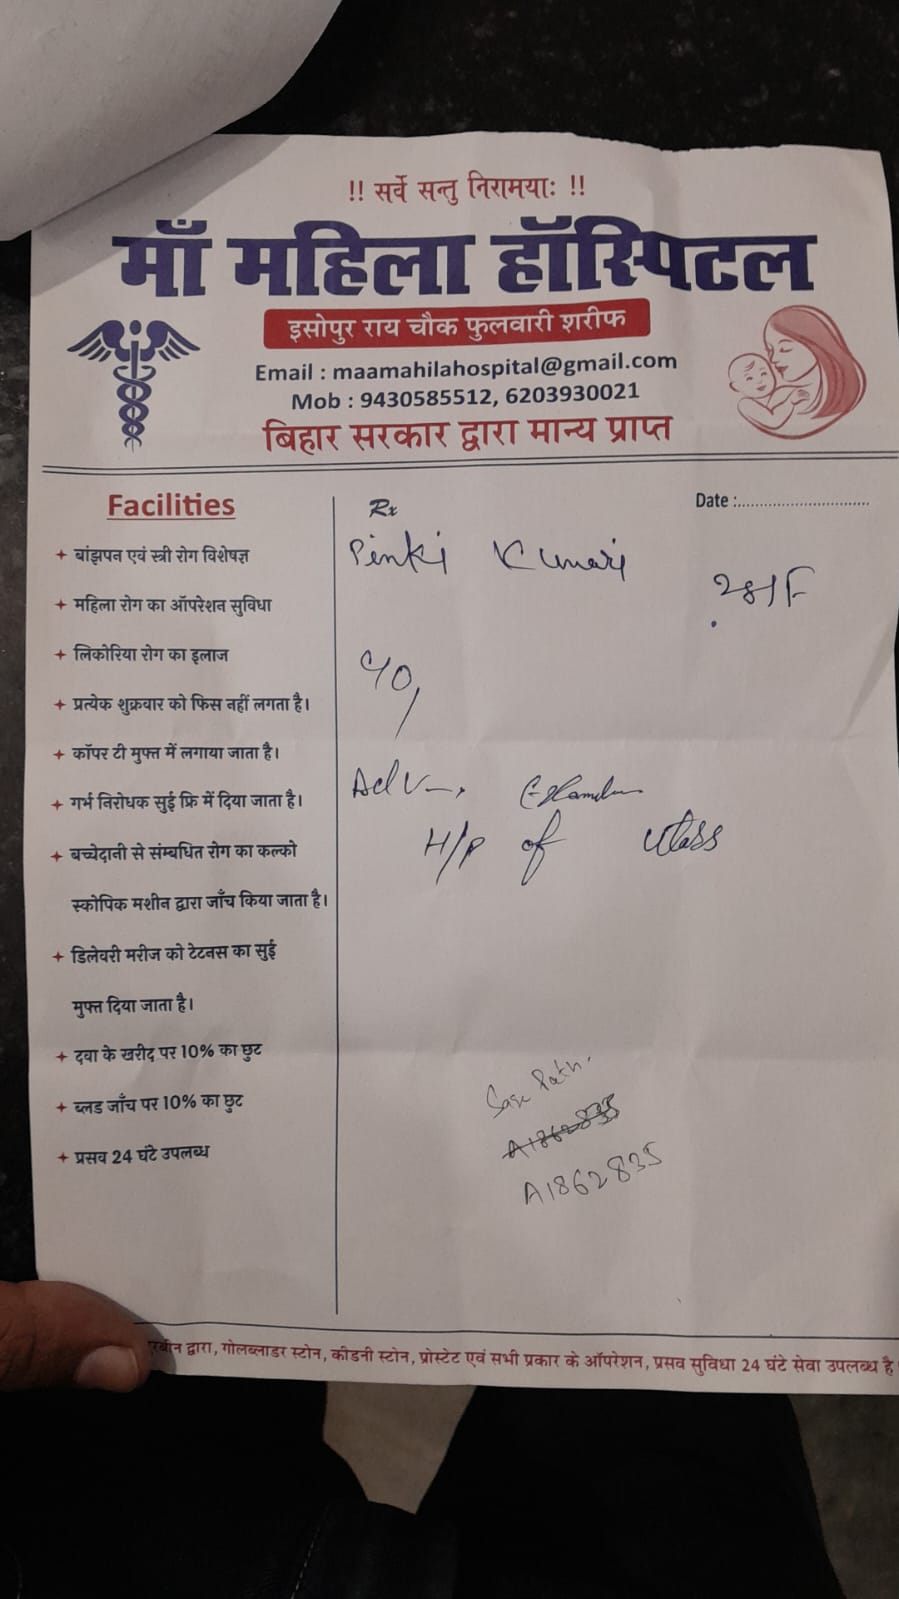 !! सर्वे सन्तु निरामयाः !!
माँ महिला हॉस्पिटल
इसोपुर राय चौक फुलवारी शरीफ
Email : maamahilahospital@gmail.com
Mob : 9430585512, 6203930021
बिहार सरकार द्वारा मान्य प्राप्त
Facilities
बांझपन एवं स्त्री रोग विशेषज्ञ
महिला रोग का ऑपरेशन सुविधा
लिकोरिया रोग का इलाज
प्रत्येक शुक्रवार को फिस नहीं लगता है।
कॉपर टी मुफ्त में लगाया जाता है।
गर्भ निरोधक सुई फ्रि में दिया जाता है।
बच्चेदानी से संम्बधित रोग का कल्को
स्कोपिक मशीन द्वारा जाँच किया जाता है।
डिलेवरी मरीज को टेटनस का सुई
मुफ्त दिया जाता है।
दवा के खरीद पर 10% का छुट
ब्लड जाँच पर 10% का छुट
प्रसव 24 घंटे उपलब्ध
Rx
Date :..............................
Pinki Kumari
28/F
Adv
H/P of
A1862835
A1862835
द्वारा, गोलब्लाडर स्टोन, कीडनी स्टोन, प्रोस्टेट एवं सभी प्रकार के ऑपरेशन, प्रसव सुविधा 24 घंटे सेवा उपलब्ध है